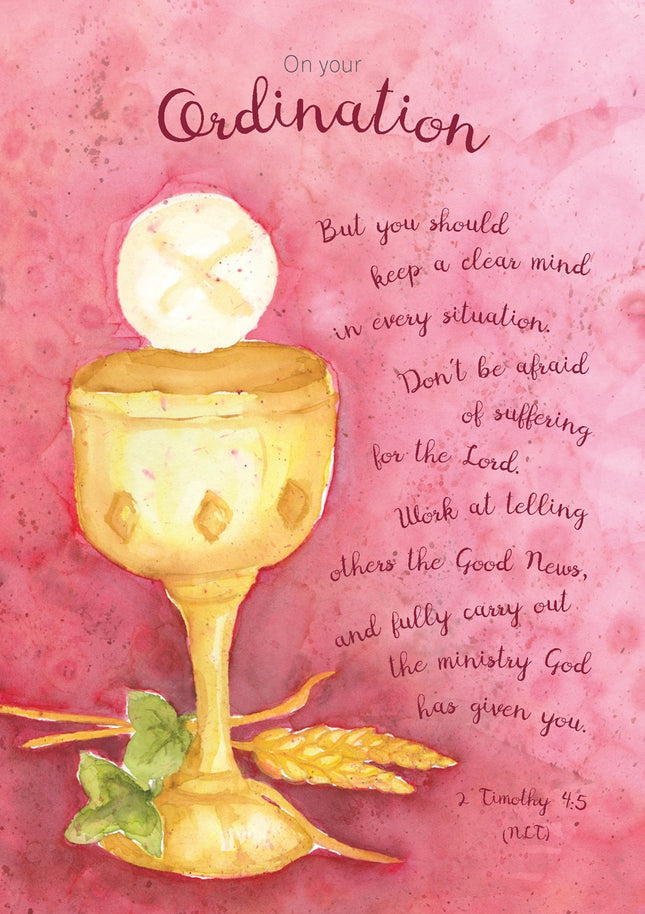 On your
Ordination
But you should
keep a clear mind
in every situation.
Don't be afraid
of suffering
for the Lord.
Work at telling
others the Good News,
and fully carry out
the ministry God
has given you.
2 Timothy 4:5
(NLT)